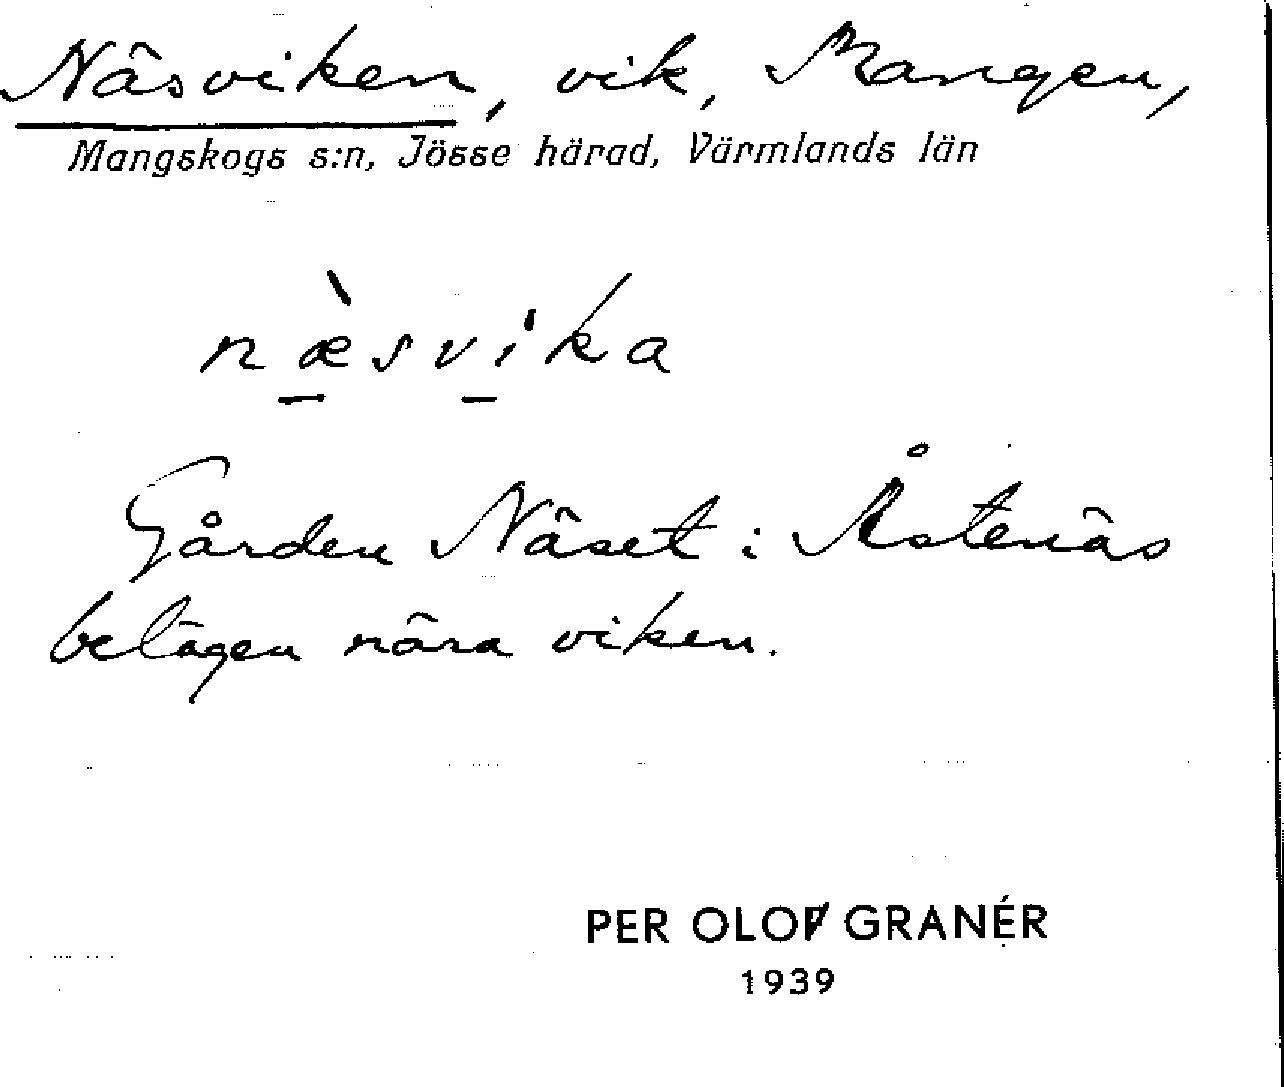 Näsviken, vik, Mangen,
Mangskogs s:n, Jösse härad, Värmlands län
næ̀svika
Gården Näset i Åstenäs
belägen nära viken.
PER OLOF GRANÉR
1939